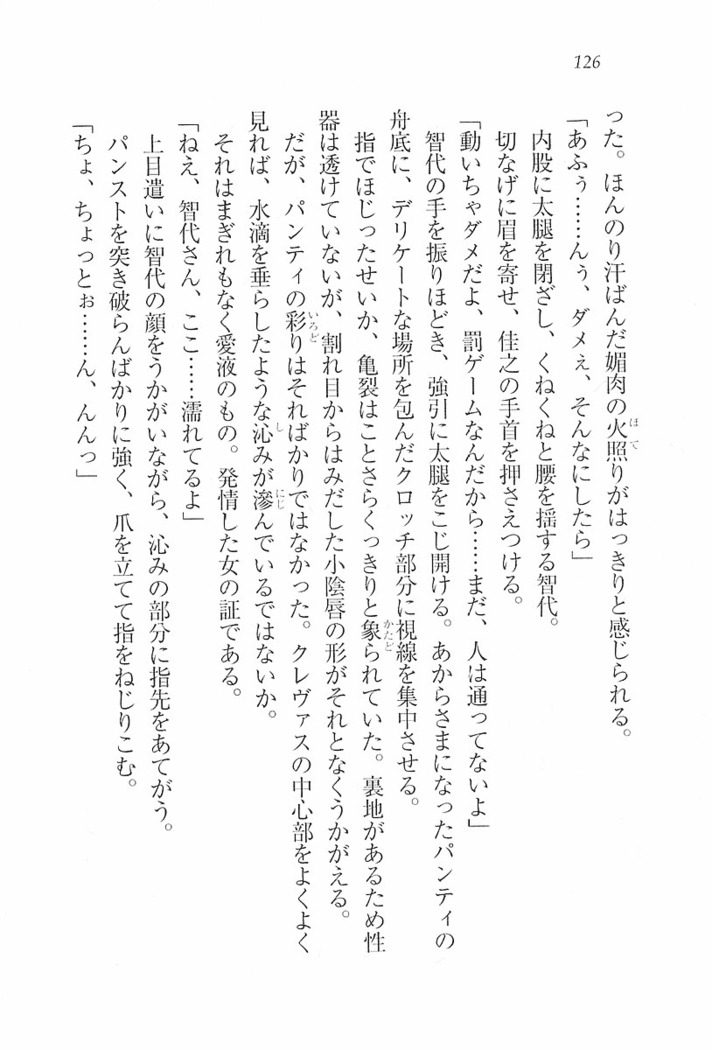 126
った。ほんのり汗ばんだ媚肉の火照りがはっきりと感じられる。
「あふぅ……んぅ、ダメぇ、そんなにしたら」
内股に太腿を閉ざし、くねくねと腰を揺する智代。
切なげに眉を寄せ、佳之の手首を押さえつける。
「動いちゃダメだよ、罰ゲームなんだから……まだ、人は通ってないよ」
智代の手を振りほどき、強引に太腿をこじ開ける。あからさまになったパンティの
舟底に、デリケートな場所を包んだクロッチ部分に視線を集中させる。
指でほじったせいか、亀裂はことさらくっきりと象られていた。裏地があるため性
器は透けていないが、割れ目からはみだした小陰唇の形がそれとなくうかがえる。
だが、パンティの彩りはそればかりではなかった。クレヴァスの中心部をよくよく
見れば、水滴を垂らしたような沁みが滲んでいるではないか。
それはまぎれもなく愛液のもの。発情した女の証である。
「ねえ、智代さん、ここ……濡れてるよ」
上目遣いに智代の顔をうかがいながら、沁みの部分に指先をあてがう。
パンストを突き破らんばかりに強く、爪を立てて指をねじりこむ。
「ちょ、ちょっとぉ……ん、んんっ」